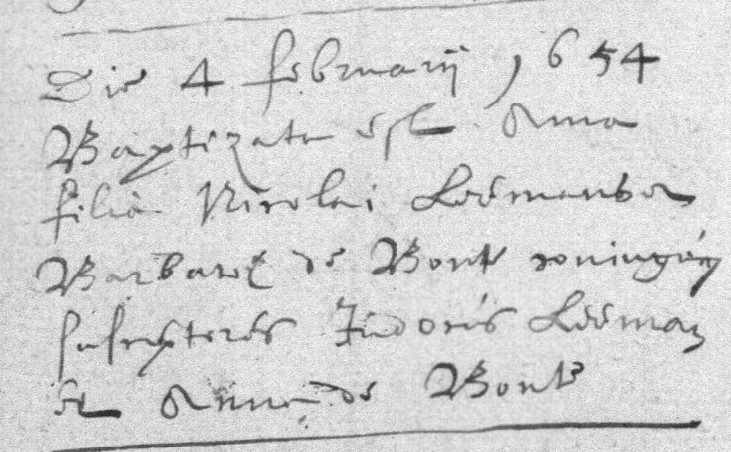 Die 4 februarij 1654
Baptizata est Anna
filia Nicolai Loomans &
Barbarae de Bont coniugum
susceptores Judocus Looman
et Anna de Bont